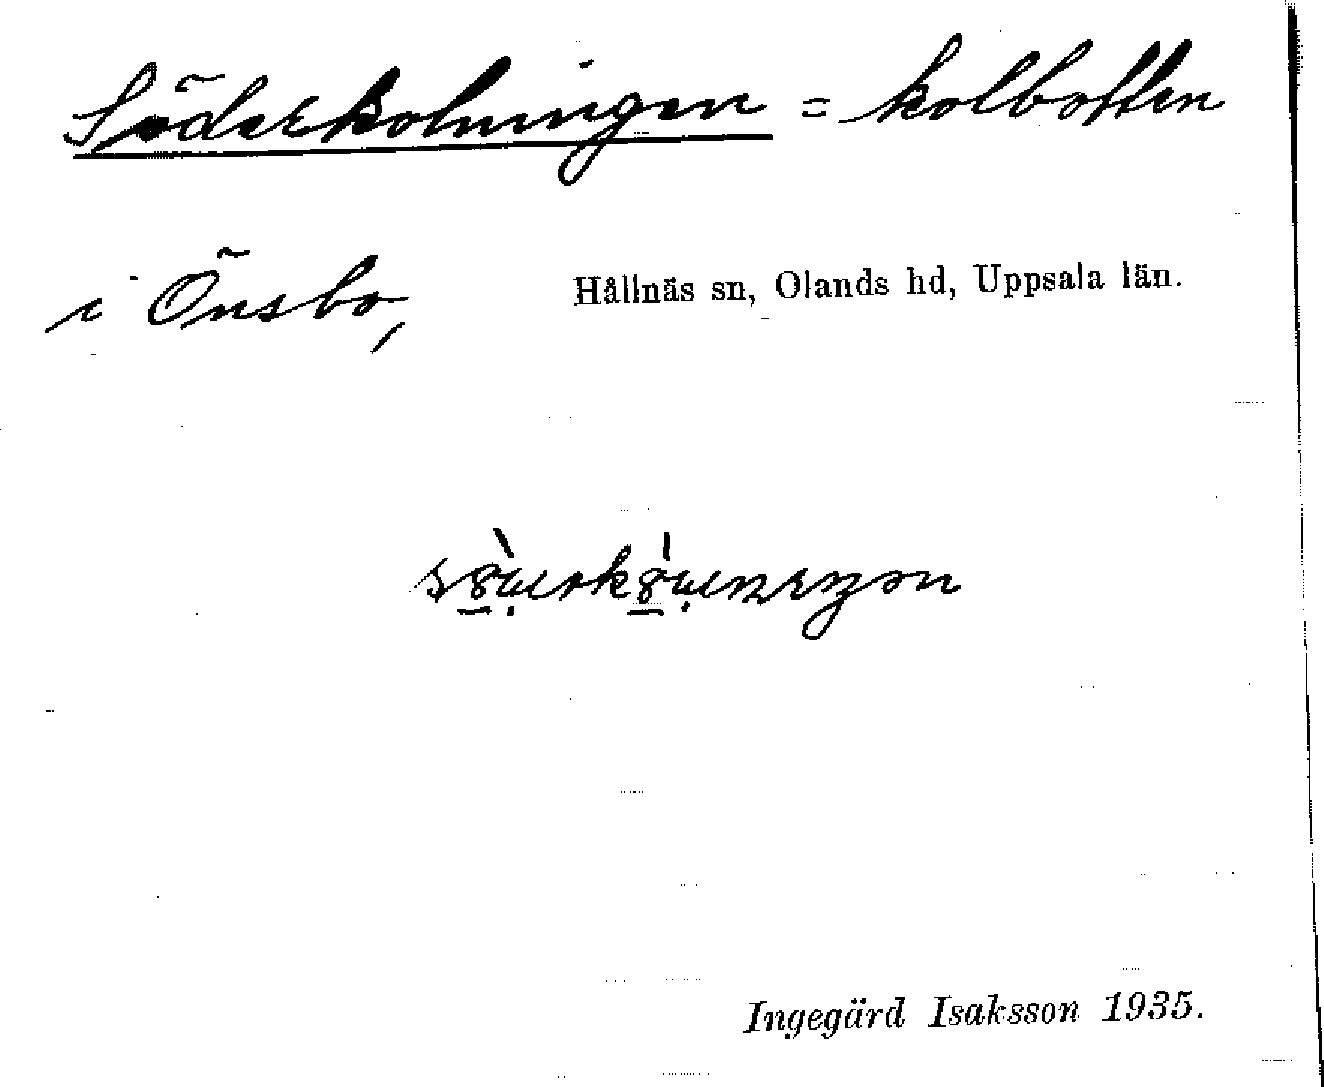 Söderkolningen = kolbotten
i Önsbo, Hållnäs sn, Olands hd, Uppsala län.
Ingegärd Isaksson 1935.